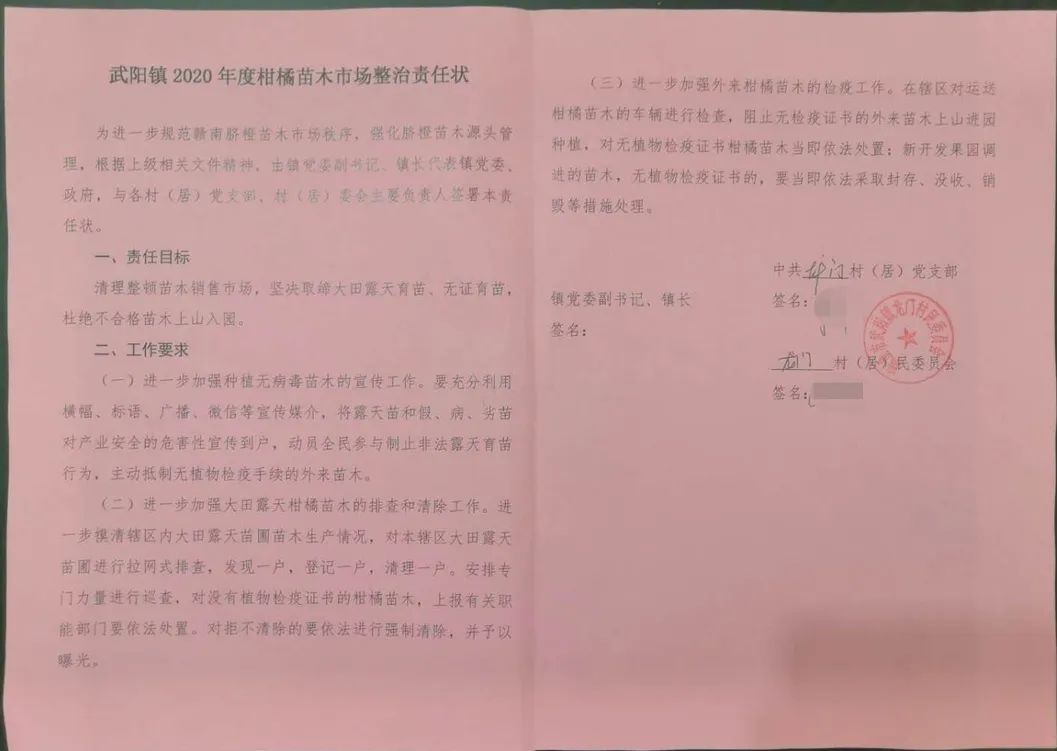 武阳镇 2020 年度柑橘苗木市场整治责任状
为进一步规范赣南脐橙苗木市场秩序，强化脐橙苗木源头管
理，根据上级相关文件精神，由镇党委副书记、镇长代表镇党委、
政府，与各村（居）党支部、村（居）委会主要负责人签署本责
任状。
一、责任目标
清理整顿苗木销售市场，坚决取缔大田露天育苗、无证育苗，
杜绝不合格苗木上山入园。
二、工作要求
（一）进一步加强种植无病毒苗木的宣传工作。要充分利用
横幅、标语、广播、微信等宣传媒介，将露天苗和假、病、劣苗
对产业安全的危害性宣传到户，动员全民参与制止非法露天育苗
行为，主动抵制无植物检疫手续的外来苗木。
（二）进一步加强大田露天柑橘苗木的排查和清除工作。进
一步摸清辖区内大田露天苗圃苗木生产情况，对本辖区大田露天
苗圃进行拉网式排查，发现一户，登记一户，清理一户。安排专
门力量进行巡查，对没有植物检疫证书的柑橘苗木，上报有关职
能部门要依法处置。对拒不清除的要依法进行强制清除，并予以
曝光。
（三）进一步加强外来柑橘苗木的检疫工作。在辖区对运送
柑橘苗木的车辆进行检查，阻止无检疫证书的外来苗木上山进园
种植，对无植物检疫证书柑橘苗木当即依法处置；新开发果园调
进的苗木，无植物检疫证书的，要当即依法采取封存、没收、销
毁等措施处理。
中共龙门村（居）党支部
镇党委副书记、镇长
签名：
签名：
龙门村（居）民委员会
签名：
武阳镇龙门村民委员会